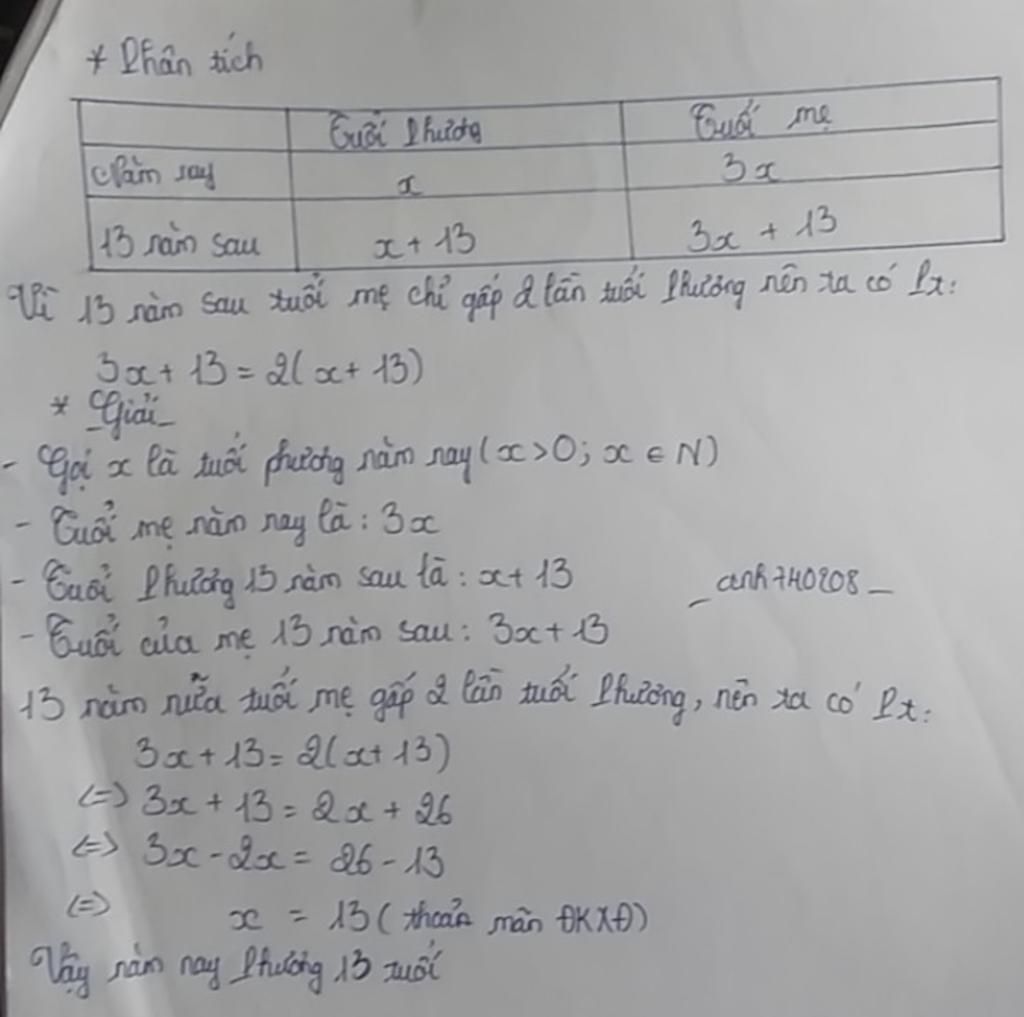 * Phân tích
Tuổi Phương Tuổi mẹ
Năm nay x 3x
13 năm sau x + 13 3x + 13
Vì 13 năm sau tuổi mẹ chỉ gấp 2 lần tuổi Phương nên ta có Pt:
3x + 13 = 2(x + 13)
* Giải
- Gọi x là tuổi phương năm nay (x > 0; x ∈ N)
- Tuổi mẹ năm nay là : 3x
- Tuổi Phương 13 năm sau là : x + 13
_ anh740208 _
- Tuổi của mẹ 13 năm sau : 3x + 13
13 năm nữa tuổi mẹ gấp 2 lần tuổi Phương, nên ta có Pt:
3x + 13 = 2(x + 13)
(=) 3x + 13 = 2x + 26
(=) 3x - 2x = 26 - 13
(=) x = 13 (thoản mãn ĐKXĐ)
Vậy năm nay Phương 13 tuổi